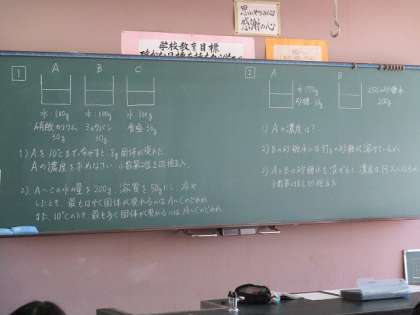 思いやりの心
感謝の心
学校教育目標
1
A B C
水:100g 水:100g 水:100g
硝酸カリウム ミョウバン 食塩 30g
30g 30g
1) Aを10℃まで冷やすと、8g 固体が現れた
Aの濃度を求めなさい 小数第2位を四捨五入
2) A〜Cの水の量を200g、溶質を50gにし、冷や
したとき、最もはやく固体が現れるのはA〜Cのどれか
また、10℃のとき最も多く固体が現れるのはA〜Cのどれか
2
A B
水
砂糖 砂糖水
200g
1) Aの濃度は?
2) Bの砂糖水には何gの砂糖が溶けているか
3) AとBの砂糖水を混ぜると、濃度は何%になるか
小数第2位を四捨五入